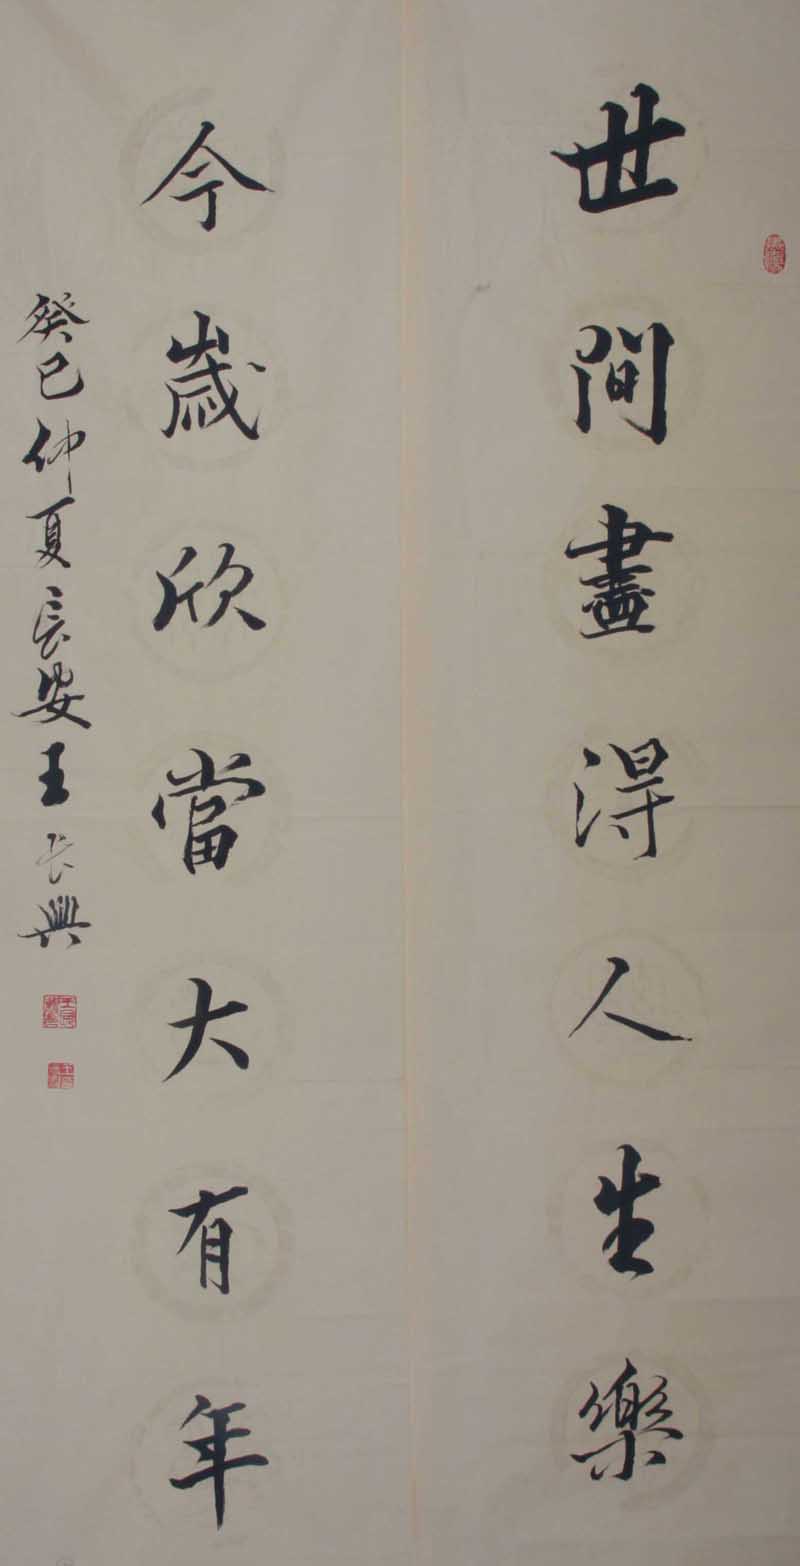 世間盡得人生樂
今歲欣當大有年
癸巳仲夏長安王長興